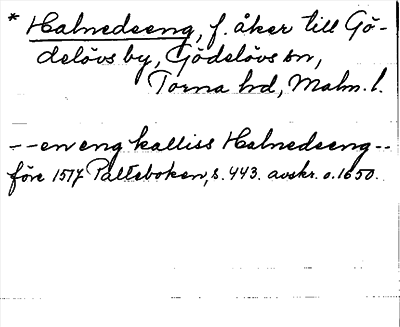 * Halnedseng, f. åker till Gö-
delövs by, Gödelövs sn,
Torna hd, Malm. l.
-- en eng kalliss Halnedseng --
före 1517 Palteboken, s. 443. avskr. o. 1650.